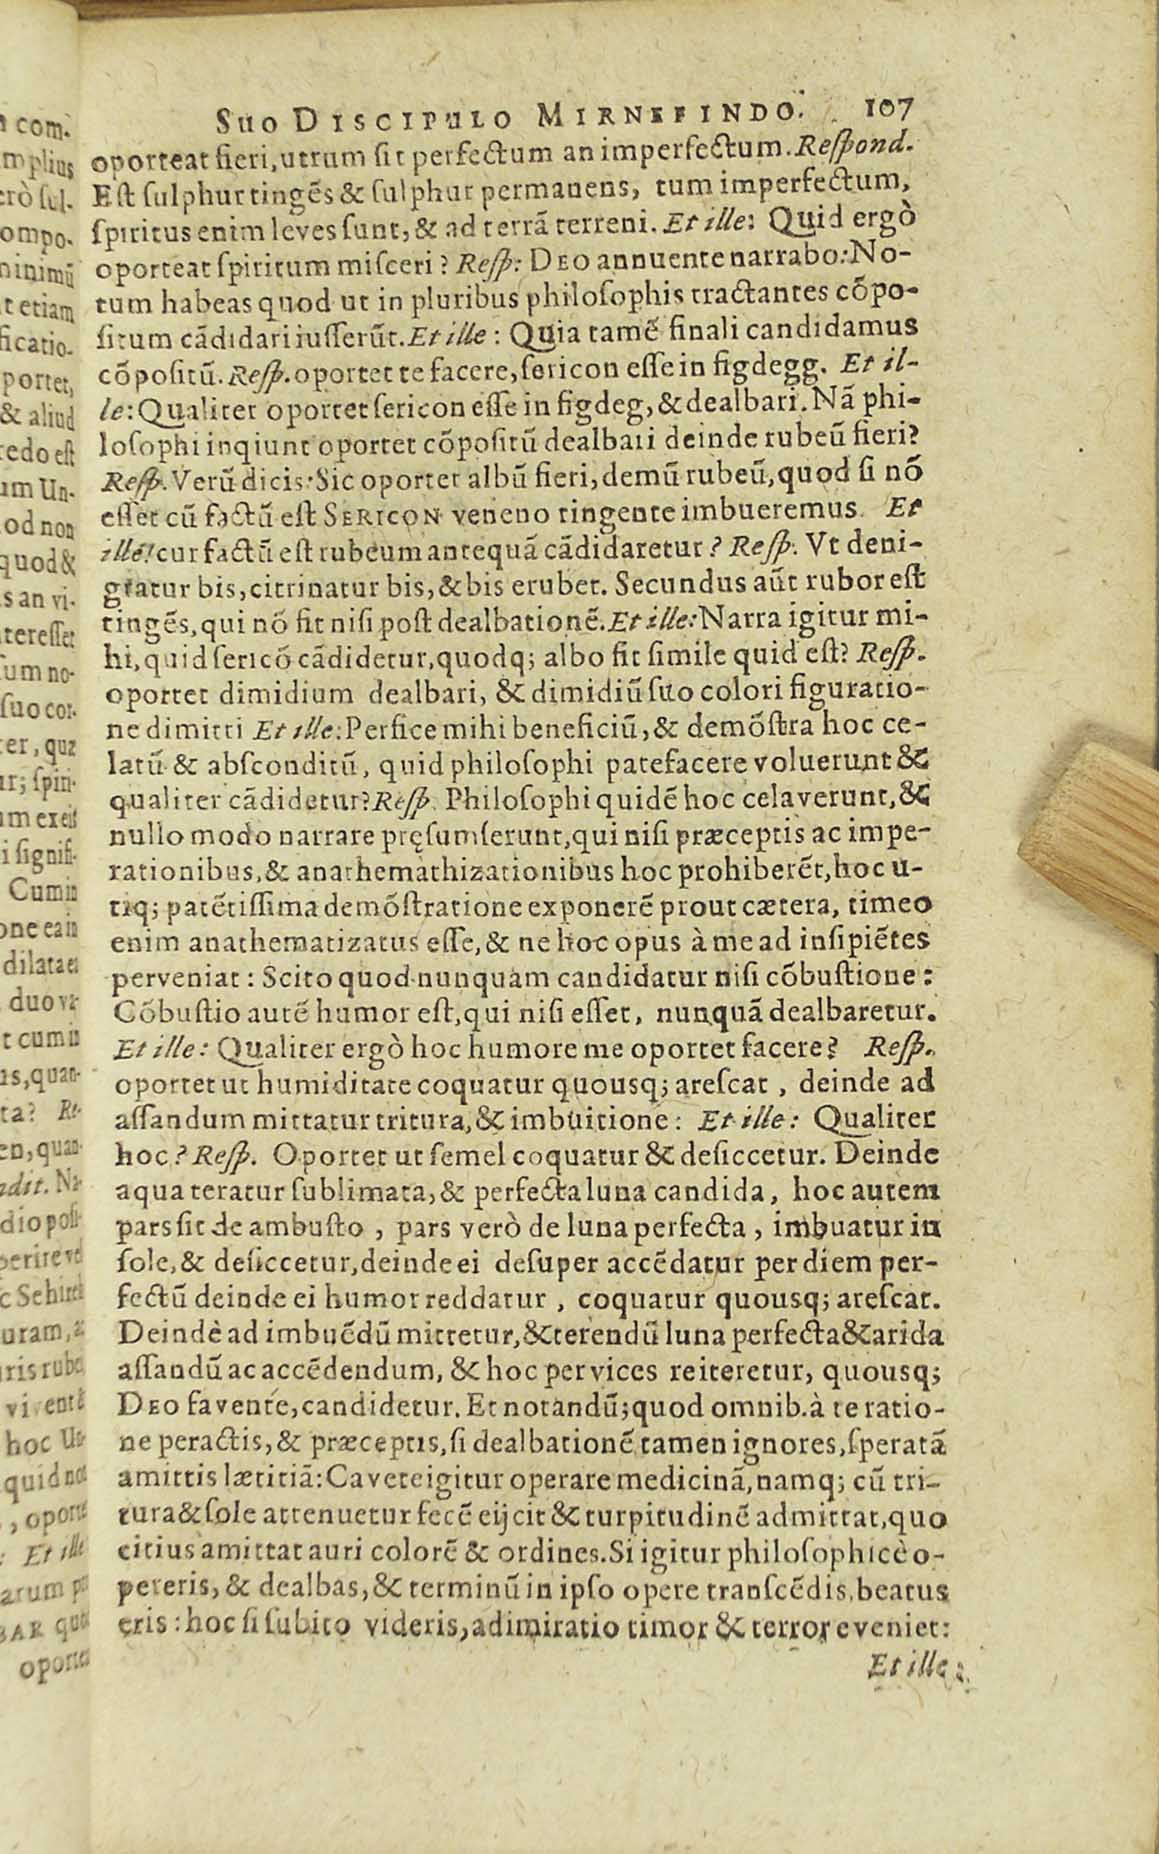 SUO DISCIPULO MIRNEFINDO. 107
oporteat fieri, utrum sit perfectum an imperfectum. Respond.
Est sulphur tingēs & sulphur permanens, tum imperfectum,
spiritus enim leves sunt, & ad terrā terreni. Et ille: Quid ergò
oporteat spiritum misceri? Resp: DEO annuente narrabo: No-
tum habeas quod ut in pluribus philosophis tractantes cōpo-
situm cādidari iusserūt. Et ille: Quia tamē finali candidamus
cōpositū. Resp. oportet te facere, sericon esse in figdegg. Et il-
le: Qualiter oportet sericon esse in figdeg, & dealbari. Nā phi-
losophi inqiunt oportet cōpositū dealbari deinde rubeū fieri?
Resp. Verū dicis: Sic oportet albū fieri, demū rubeū, quod si nō
esset cū factū est SERICON veneno tingente imbueremus. Et
ille: cur factū est rubeum antequā cādidaretur? Resp. Vt deni-
gratur bis, citrinatur bis, & bis erubet. Secundus aūt rubor est
tingēs, qui nō fit nisi post dealbationē. Et ille: Narra igitur mi-
hi, quid sericō cādidetur, quodq; albo fit simile quid est? Resp.
oportet dimidium dealbari, & dimidiū suo colori figuratio-
ne dimitti Et ille: Perfice mihi beneficiū, & demōstra hoc ce-
latū & absconditū, quid philosophi patefacere voluerunt &
qualiter cādidetur? Resp. Philosophi quidē hoc celaverunt, &
nullo modo narrare pręsumserunt, qui nisi præceptis ac impe-
rationibus, & anathemathizationibus hoc prohiberēt, hoc u-
tiq; patētissima demōstratione exponerē prout cætera, timeo
enim anathematizatus esse, & ne hoc opus à me ad insipiētes
perveniat: Scito quod nunquam candidatur nisi cōbustione:
Cōbustio autē humor est, qui nisi esset, nunquā dealbaretur.
Et ille: Qualiter ergò hoc humore me oportet facere? Resp.
oportet ut humiditate coquatur quousq; arescat, deinde ad
assandum mittatur tritura, & imbuitione: Et ille: Qualiter
hoc? Resp. Oportet ut semel coquatur & desiccetur. Deinde
aqua teratur sublimata, & perfecta luna candida, hoc autem
pars sit de ambusto, pars verò de luna perfecta, imbuatur in
sole, & desiccetur, deinde ei desuper accēdatur per diem per-
fectū deinde ei humor reddatur, coquatur quousq; arescat.
Deindè ad imbuēdū mittetur, & terendū luna perfecta & arida
assandū ac accēdendum, & hoc per vices reiteretur, quousq;
DEO favente, candidetur. Et notandū; quod omnib. à te ratio-
ne peractis, & præceptis, si dealbationē tamen ignores, speratā
amittis lætitiā: Cavete igitur operare medicinā, namq; cū tri-
tura & sole attenuetur fecē eijcit & turpitudinē admittat, quo
citius amittat auri colorē & ordines. Si igitur philosophicè o-
pereris, & dealbas, & terminū in ipso opere transcēdis, beatus
eris: hoc si subito videris, adimiratio timor & terror eveniet:
Et ille: